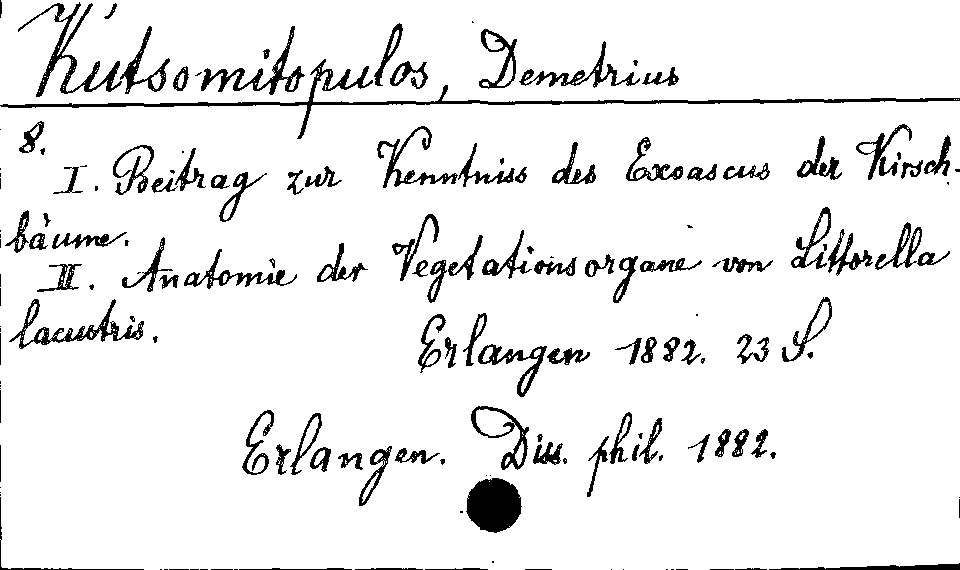 Kutsomitopulos, Demetrius
8.
I. Beitrag zur Kenntniss des Exoascus der Kirsch-
bäume.
II. Anatomie der Vegetationsorgane von Littorella
lacustris.
Erlangen 1882. 23 S.
Erlangen. Diss. phil. 1882.